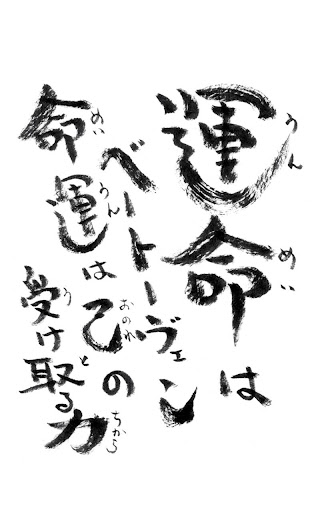 運命は
うんめい
ベートーヴェン
命運は己の
めいうん
おのれ
受け取る力
う
と
ちから